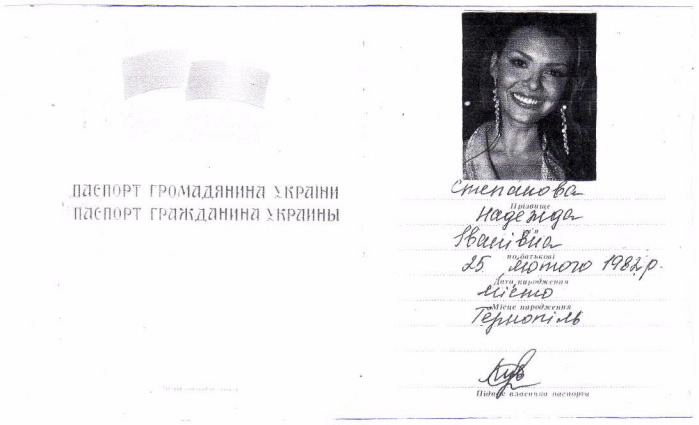 ПАСПОРТ ГРОМАДЯНИНА УКРАЇНИ
ПАСПОРТ ГРАЖДАНИНА УКРАИНЫ
Степанова
Прізвище
Надежда
Ім'я
Іванівна
по батькові
25 лютого 1982 р.
Дата народження
місто
Місце народження
Тернопіль
Підпис власника паспорта